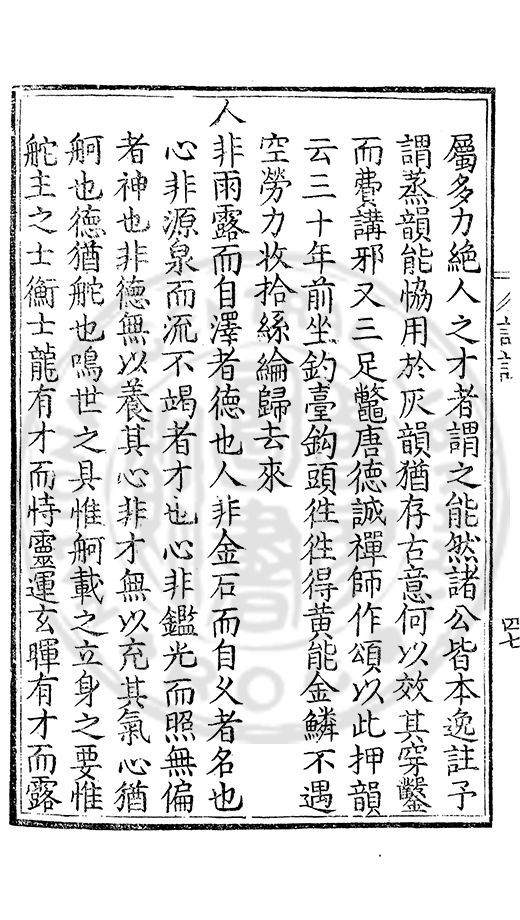 屬多力絶人之才者謂之能然諸公皆本逸註予
謂蒸韻能恊用於灰韻猶存古意何以效其穿鑿
而費講邪又三足鼈唐德誠禪師作頌以此押韻
云三十年前坐釣臺鈎頭徃徃得黄能金鱗不遇
空勞力收拾絲綸歸去來
人非雨露而自澤者德也人非金石而自久者名也
心非源泉而流不竭者才也心非鑑光而照無偏
者神也非德無以養其心非才無以充其氣心猶
舸也德猶舵也鳴世之具惟舸載之立身之要惟
舵主之士衡士龍有才而恃靈運玄暉有才而露
四七